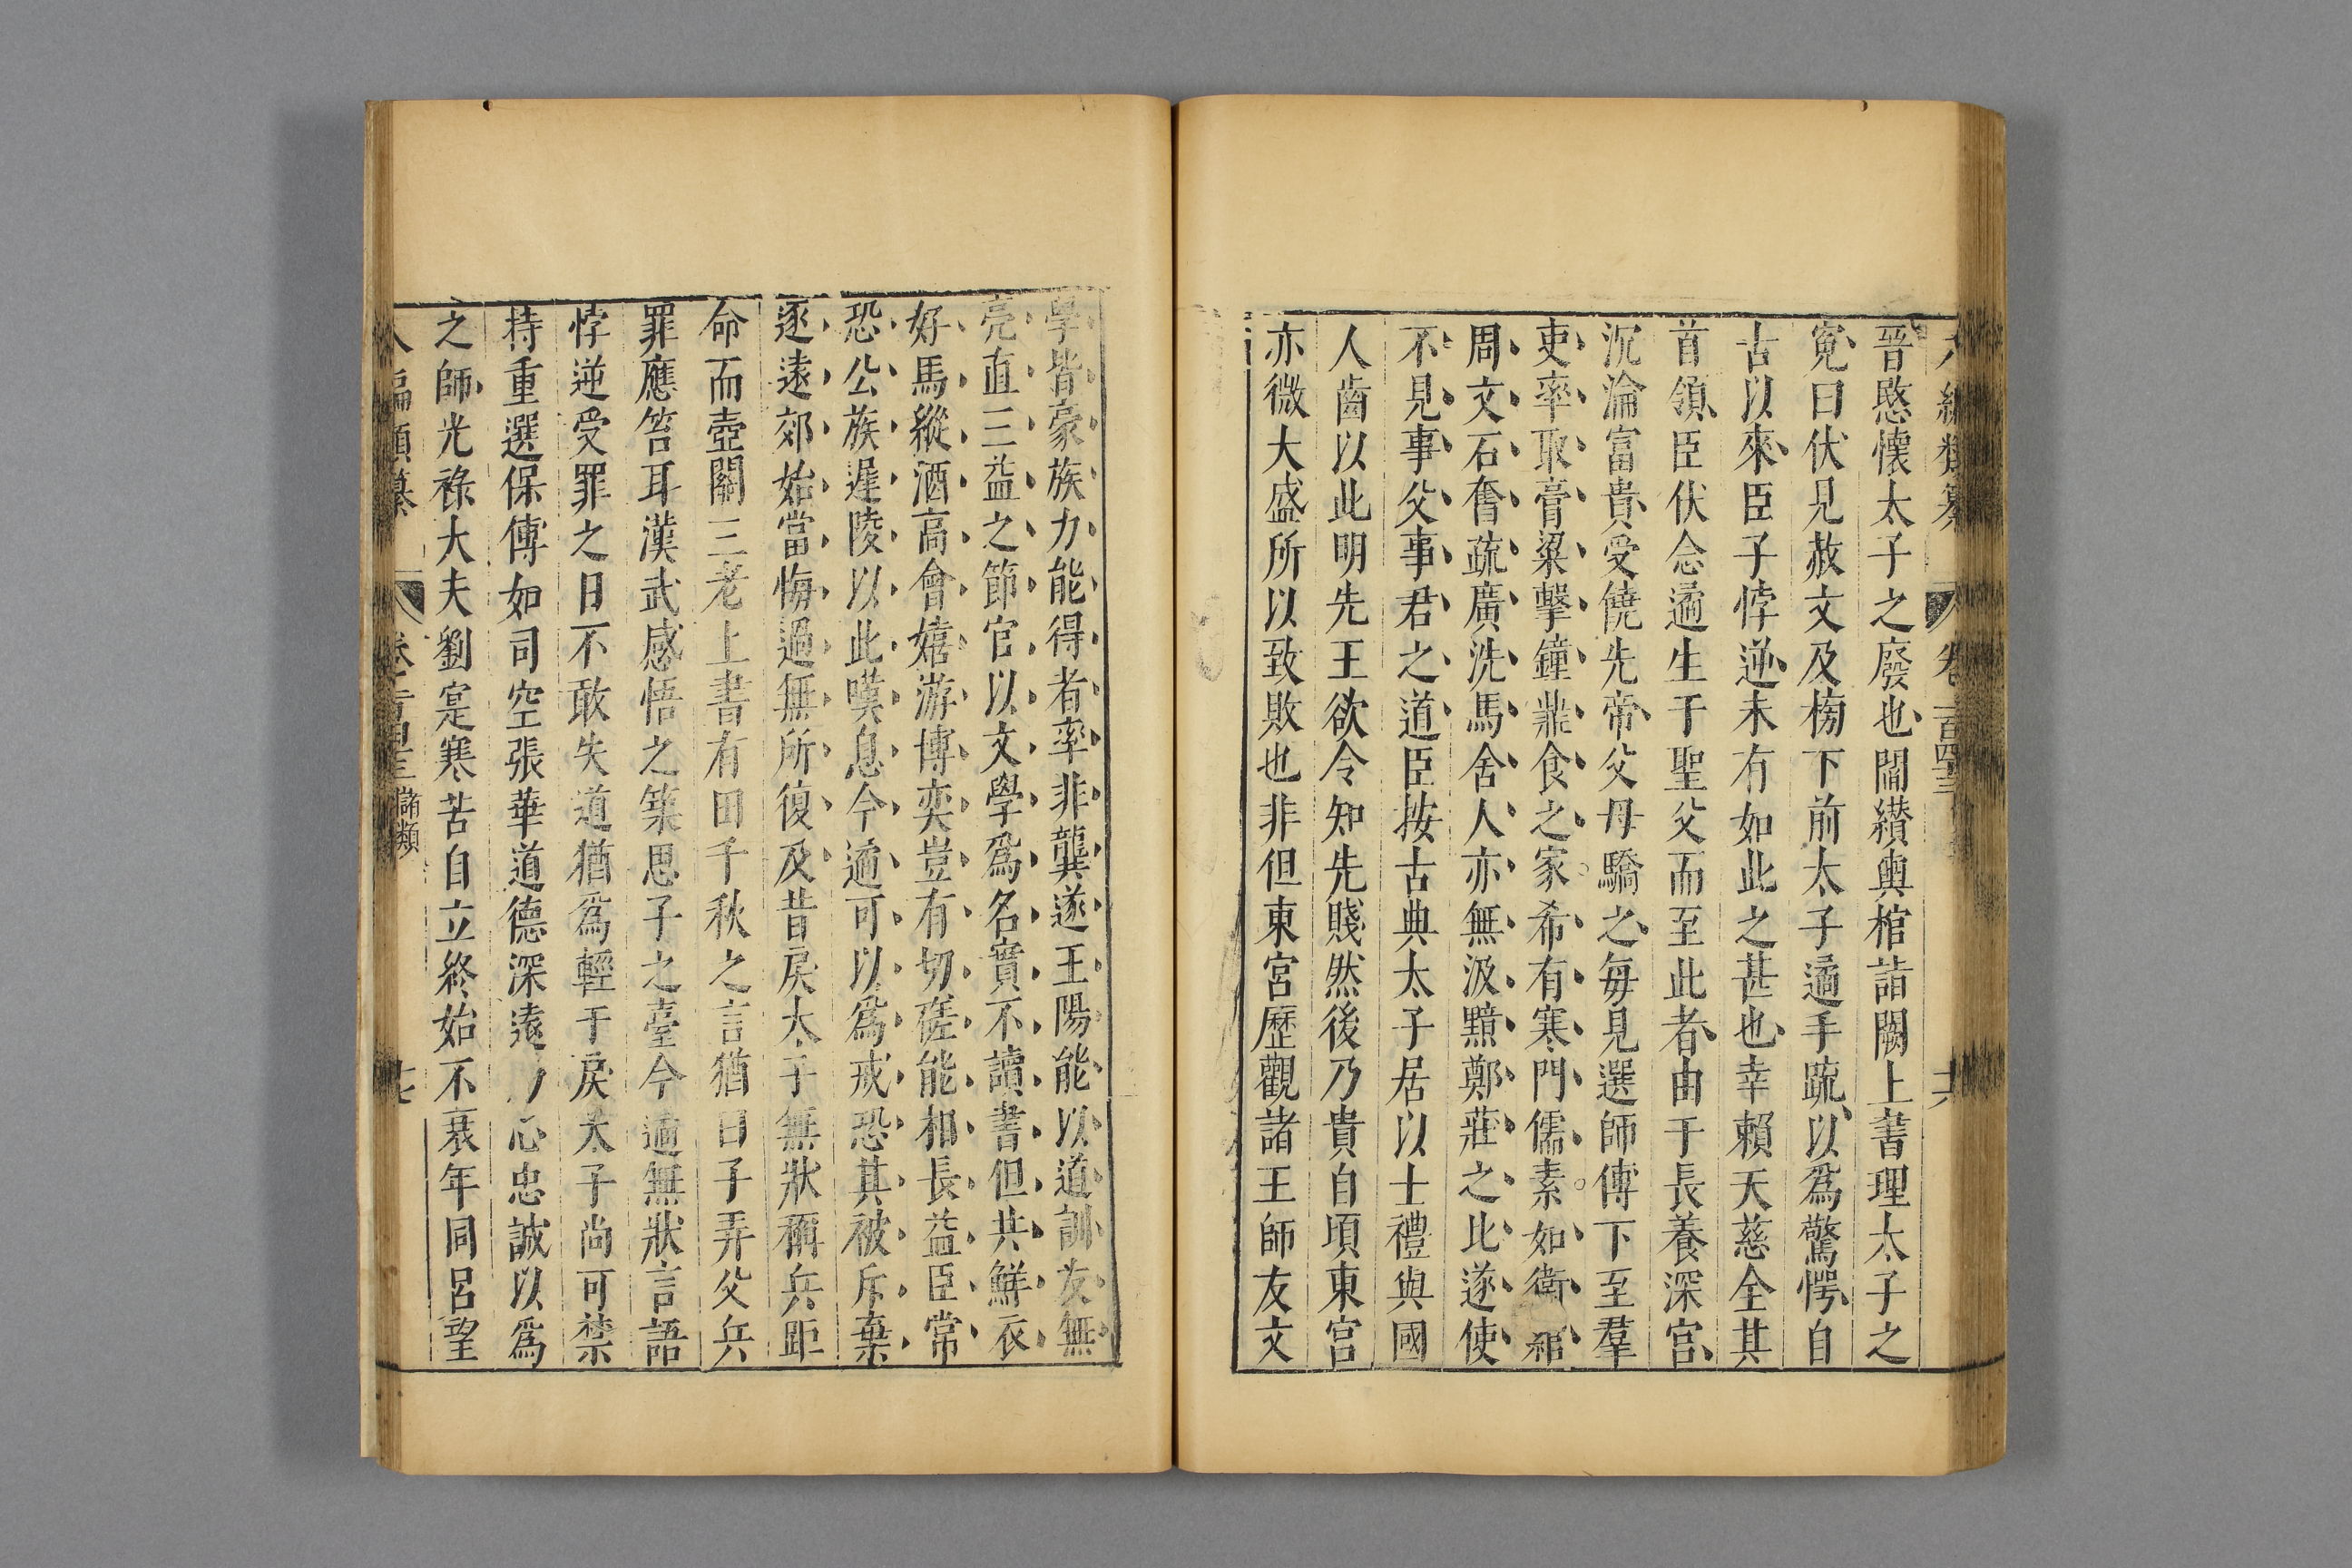 八編類纂 卷一百四三 十六
晉愍懷太子之廢也閻纉輿棺詣闕上書理太子之
寃曰伏見赦文及榜下前太子遹手疏以爲驚愕自
古以來臣子悖逆未有如此之甚也幸賴天慈全其
首領臣伏念遹生于聖父而至此者由于長養深宫
沉淪富貴受饒先帝父母驕之每見選師傅下至羣
吏率取膏粱擊鐘鼎食之家希有寒門儒素如衛綰
周文石奮疏廣洗馬舍人亦無汲黯鄭莊之比遂使
不見事父事君之道臣按古典太子居以士禮與國
人齒以此明先王欲令知先賤然後乃貴自頃東宫
亦微大盛所以致敗也非但東宮歷觀諸王師友文
學皆豪族力能得者率非龔遂王陽能以道訓友無
亮直三益之節官以文學爲名實不讀書但共鮮衣
好馬縱酒高會嬉游博奕豈有切磋能相長益臣常
恐公族遲陵以此嘆息今遹可以爲戒恐其被斥棄
逐遠郊始當悔過無所復及昔戾太子無狀稱兵距
命而壺關三老上書有田千秋之言猶曰子弄父兵
罪應笞耳漢武感悟之築思子之臺今遹無狀言語
悖逆受罪之日不敢失道猶爲輕于戾太子尚可禁
持重選保傅如司空張華道德深遠乃心忠誠以爲
之師光祿大夫劉寔寒苦自立終始不衰年同呂望
八編類纂 卷一百四三 儲類 十七